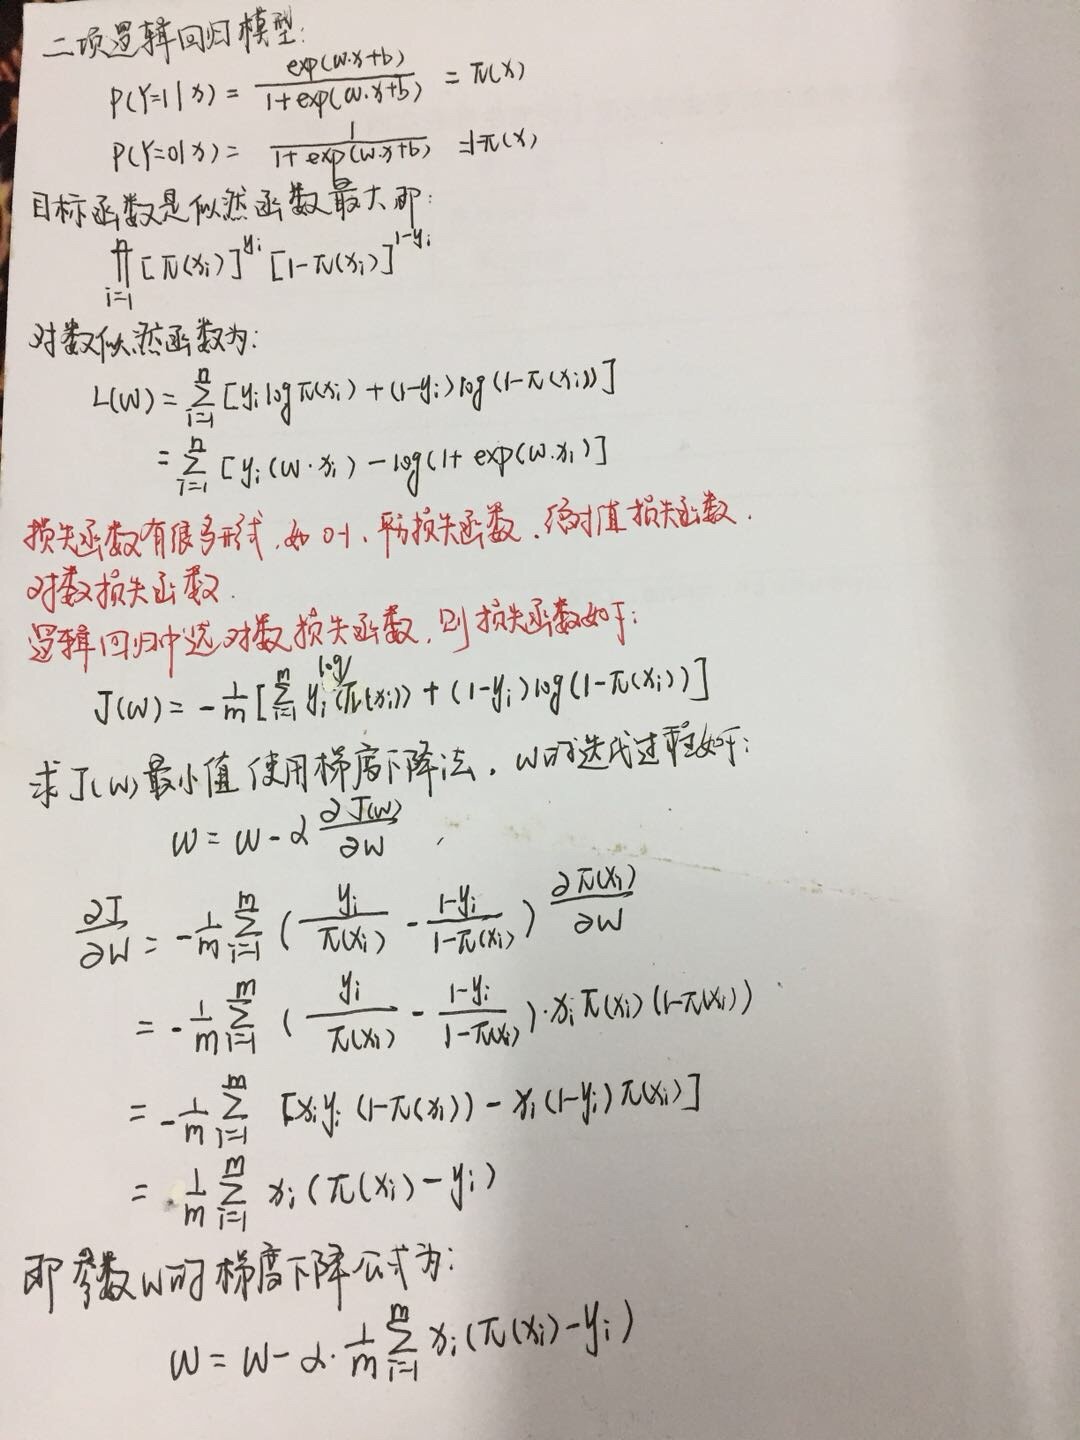 二项逻辑回归模型:
P(Y=1|x) = exp(w·x+b) / 1+exp(w·x+b) = π(x)
P(Y=0|x) = 1 / 1+exp(w·x+b) = 1-π(x)
目标函数是似然函数最大即:
∏_{i=1}^{n} [π(xi)]^{yi} [1-π(xi)]^{1-yi}
对数似然函数为:
L(w) = ∑_{i=1}^{n} [yi log π(xi) + (1-yi) log(1-π(xi))]
= ∑_{i=1}^{n} [yi(w·xi) - log(1+exp(w·xi)]
损失函数有很多形式,如0-1、平方损失函数、绝对值损失函数、
对数损失函数.
逻辑回归中选对数损失函数,则损失函数如下:
J(w) = -1/m [∑_{i=1}^{m} yi log(π(xi)) + (1-yi) log(1-π(xi))]
求J(w)最小值使用梯度下降法,w的迭代过程如下:
w = w - α ∂J(w)/∂w ,
∂J/∂w = -1/m ∑_{i=1}^{m} ( yi/π(xi) - 1-yi/1-π(xi) ) ∂π(xi)/∂w
= -1/m ∑_{i=1}^{m} ( yi/π(xi) - 1-yi/1-π(xi) )·xi π(xi)(1-π(xi))
= -1/m ∑_{i=1}^{m} [xi yi (1-π(xi)) - xi(1-yi)π(xi)]
= 1/m ∑_{i=1}^{m} xi(π(xi)-yi)
即参数w的梯度下降公式为:
w = w - α· 1/m ∑_{i=1}^{m} xi(π(xi)-yi)